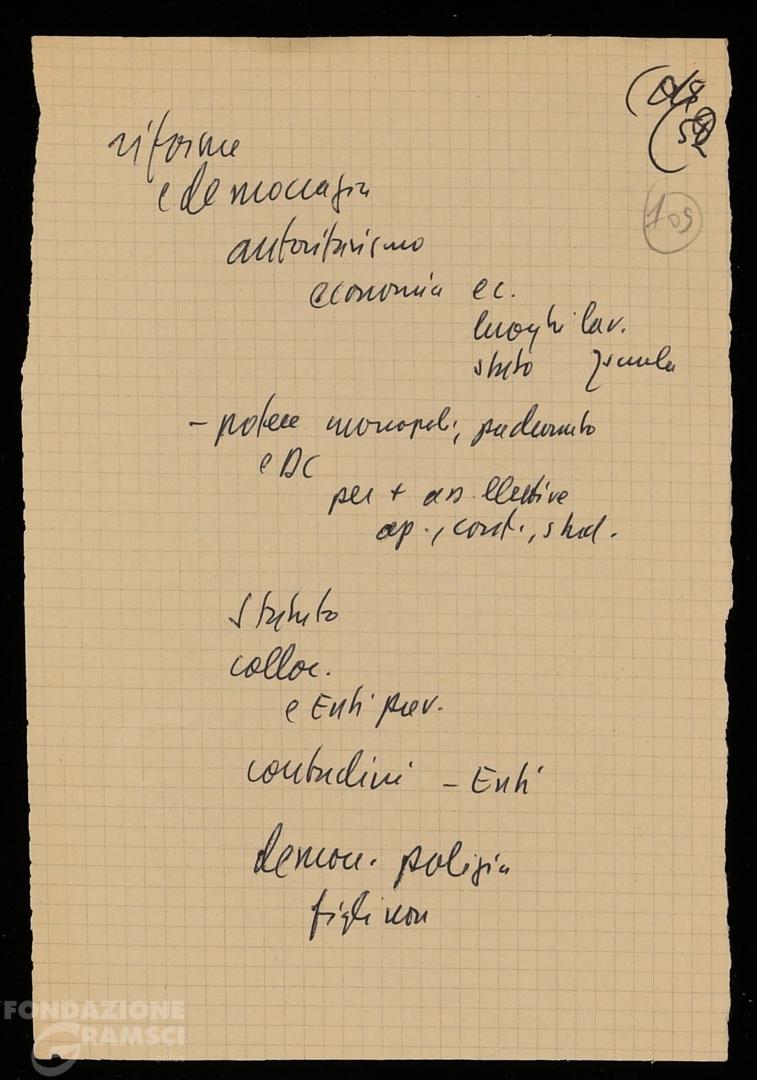 109
riforme
e democrazia
autoritarismo
economia ec.
luoghi lav.
stato scuola
- potere monopoli, padronato
e DC
per + ass. elettive
op., cont., stud.
Statuto
colloc.
e Enti prev.
contadini - Enti
democ. polizia
figli non
FONDAZIONE
GRAMSCI
onlus